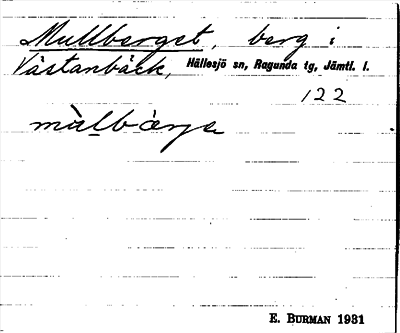 Mullberget, berg i
Västanbäck, Hällesjö sn, Ragunda tg, Jämtl. l.
122
mùlbærje
E. BURMAN 1931